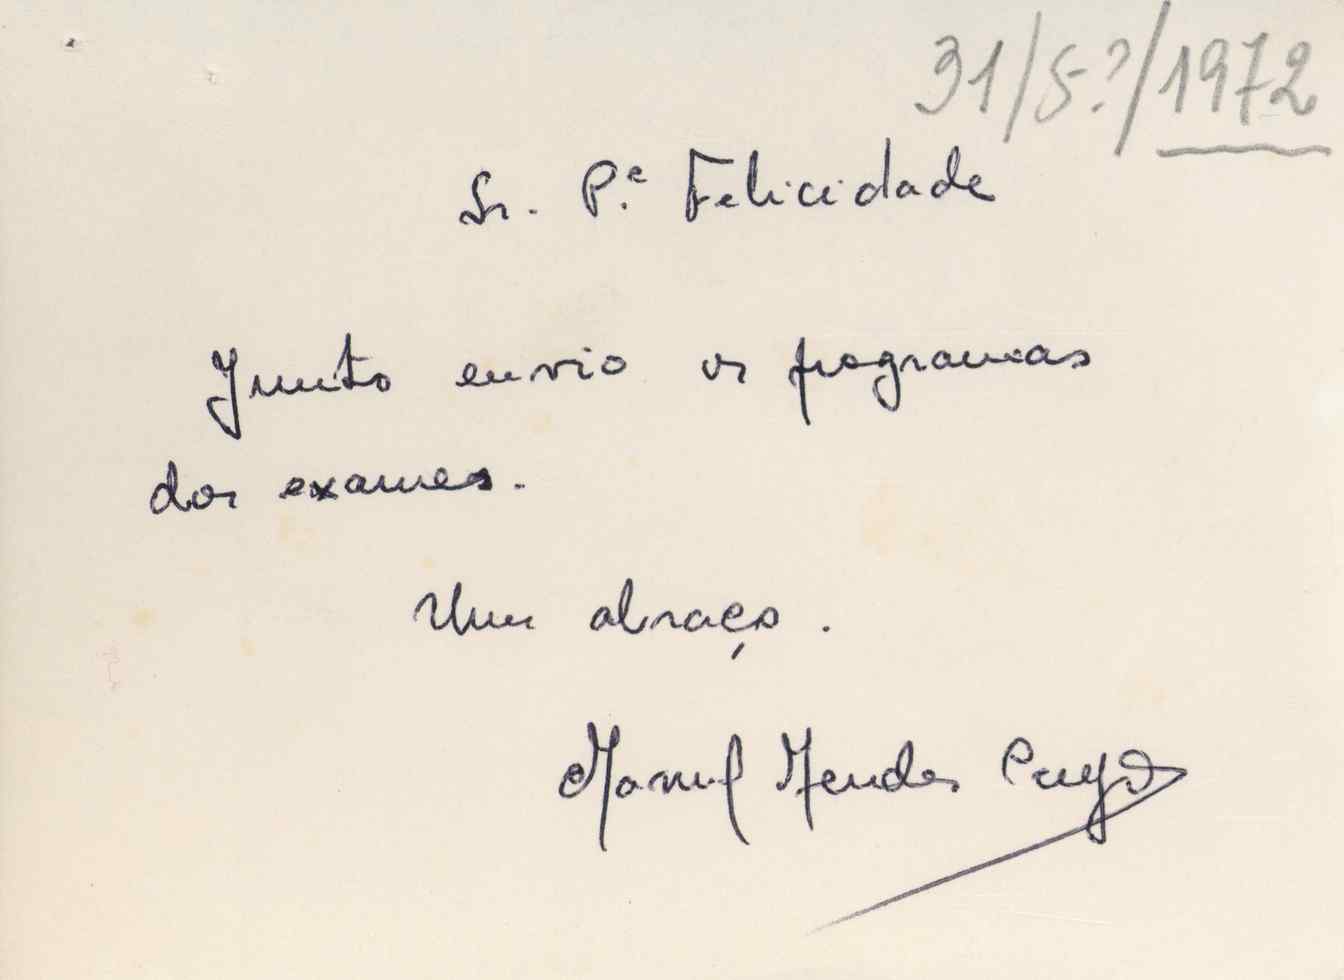 31/5?/1972
Sr. P.e Felicidade
Junto envio os programas
dos exames.
Um abraço.
Manuel Mendes